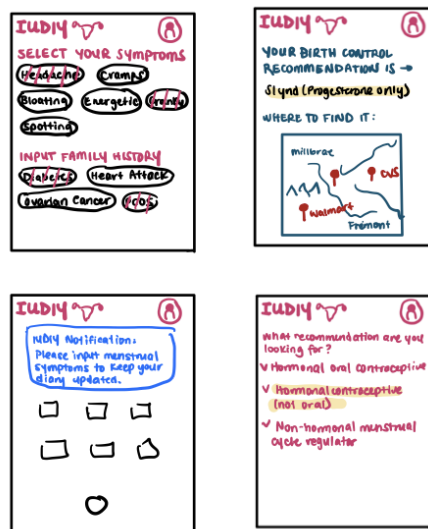 IUDIY
SELECT YOUR SYMPTOMS
Headache
Cramps
Bloating
Energetic
Cranky
Spotting
INPUT FAMILY HISTORY
Diabetes
Heart Attack
Ovarian Cancer
PCOS
IUDIY
YOUR BIRTH CONTROL
RECOMMENDATION IS →
Slynd (Progestrone only)
WHERE TO FIND IT:
millbrae
CVS
Walmart
Fremont
IUDIY
IUDIY Notification:
Please input menstrual
symptoms to keep your
diary updated.
IUDIY
What recommendation are you
looking for?
Hormonal oral contraceptive
Hormonal contraceptive
(not oral)
Non-hormonal menstrual
cycle regulator